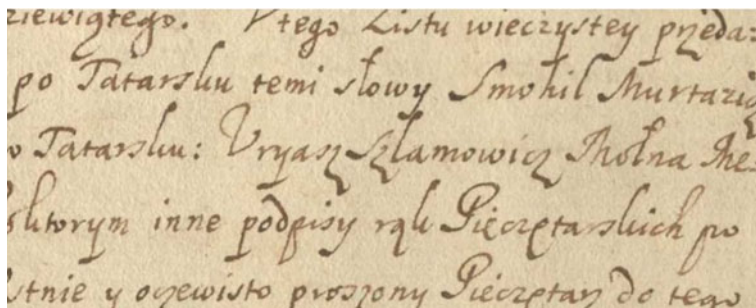 dziewiątego. U tego Listu wieczystey przeda:
po Tatarsku temi słowy Smohil Murtazicz
o Tatarsku: Uryasz Szlamowicz Mołna Me-
ktorym inne podpisy rąk Pieczętarskich po
stnie y oczewisto proszony Pieczętarz do tego